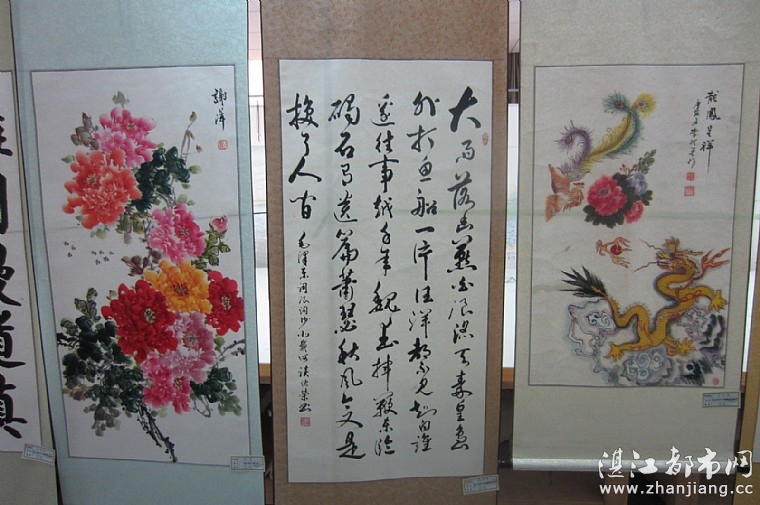 道真
謝萍
大雨落幽燕白浪滔天秦皇島
外打魚船一片汪洋都不見知向誰
邊往事越千年魏武揮鞭東臨
碣石有遺篇蕭瑟秋風今又是
換了人間
毛澤東詞浪淘沙北戴河
龍鳳呈祥
湛江都市网
www.zhanjiang.cc